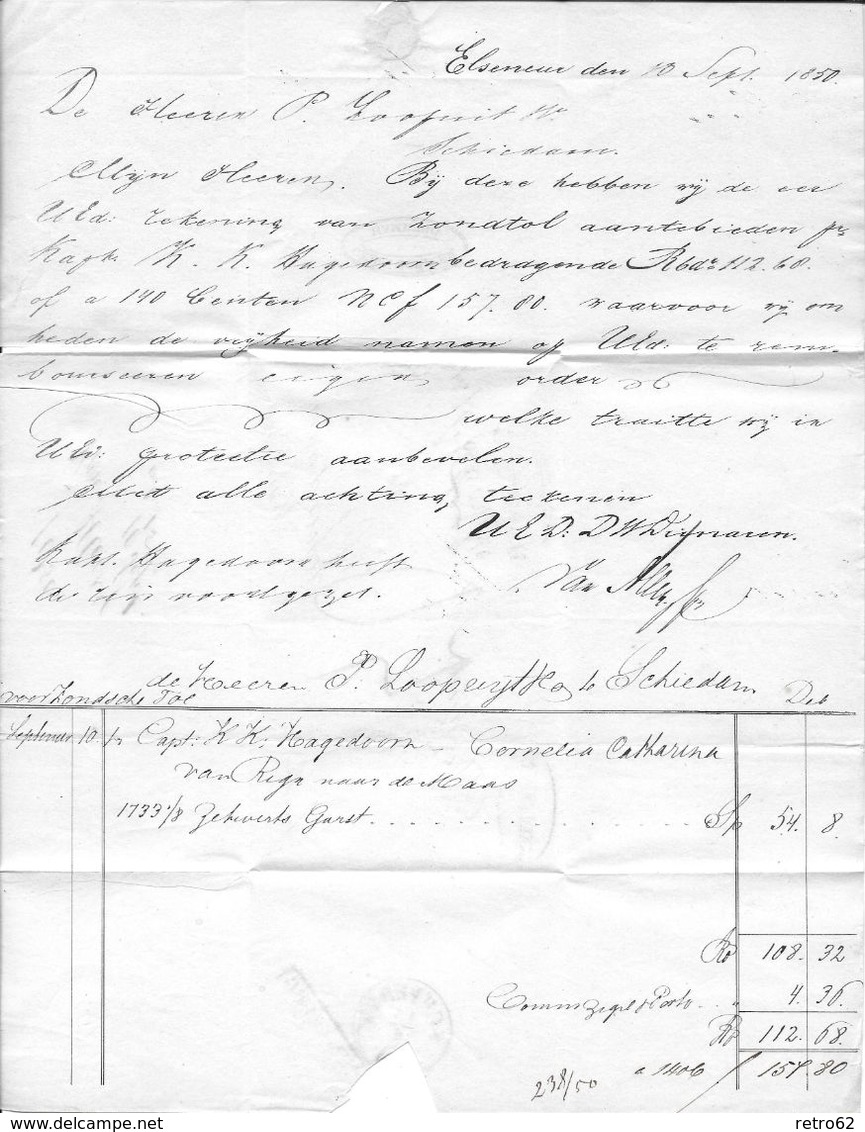 Elseneur den 10 Sept. 1850.
De Heeren P. Loopuit
Schiedam.
Mijn Heeren, Bij deze hebben wij de eer
UEd: rekening van Zondtol aantebieden pr
Kaptn K. K. Hagedoorn bedragende Rbdr 112.68.
of a 140 Centen NCf 157.80. waarvoor wij om
heden de vrijheid namen op UEd: te rem-
bourseeren eigen order
welke traitte wij in
UEd: protectie aanbevelen.
Met alle achting, teekenen
U E D: D W
Van
Kapt. Hagedoorn heeft
de reis voortgezet.
de Heeren P. Loopuyt & Co te Schiedam
voor Zondsche Tol Deb
September 10 pr Capt: K K: Hagedoorn - Cornelia Catharina
van Riga naar de Maas
1733 1/8 Zetwerts Garst. . . . . . . . . . . Sp 54. 8.
Rb 108. 32
Comm Zegel & Porto . . " 4. 36.
Rb 112. 68.
238/50 a 1406 f 157. 80
www.delcampe.net retro62